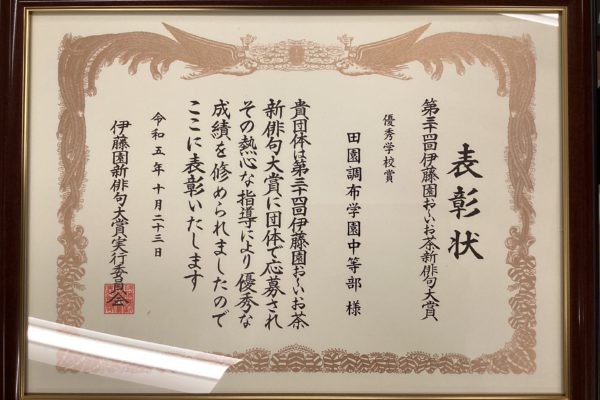 表彰状
第三十四回伊藤園お〜いお茶新俳句大賞
優秀学校賞
田園調布学園中等部 様
貴団体は第三十四回伊藤園お〜いお茶
新俳句大賞に団体で応募され
その熱心な指導により優秀な
成績を修められましたので
ここに表彰いたします
令和五年十月二十三日
伊藤園新俳句大賞実行委員会